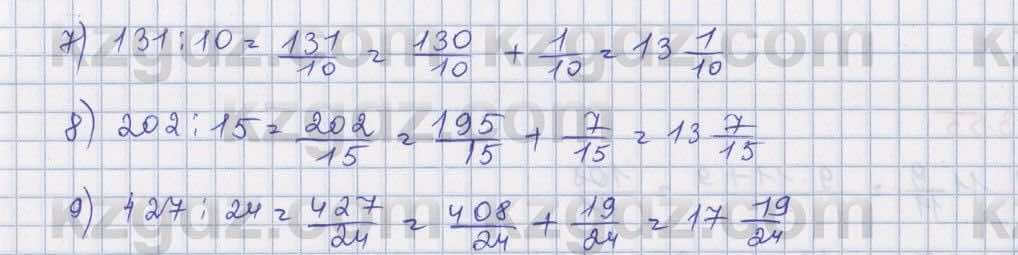 7) 131 : 10 = 131/10 = 130/10 + 1/10 = 13 1/10
8) 202 : 15 = 202/15 = 195/15 + 7/15 = 13 7/15
9) 427 : 24 = 427/24 = 408/24 + 19/24 = 17 19/24
kzgdz.com